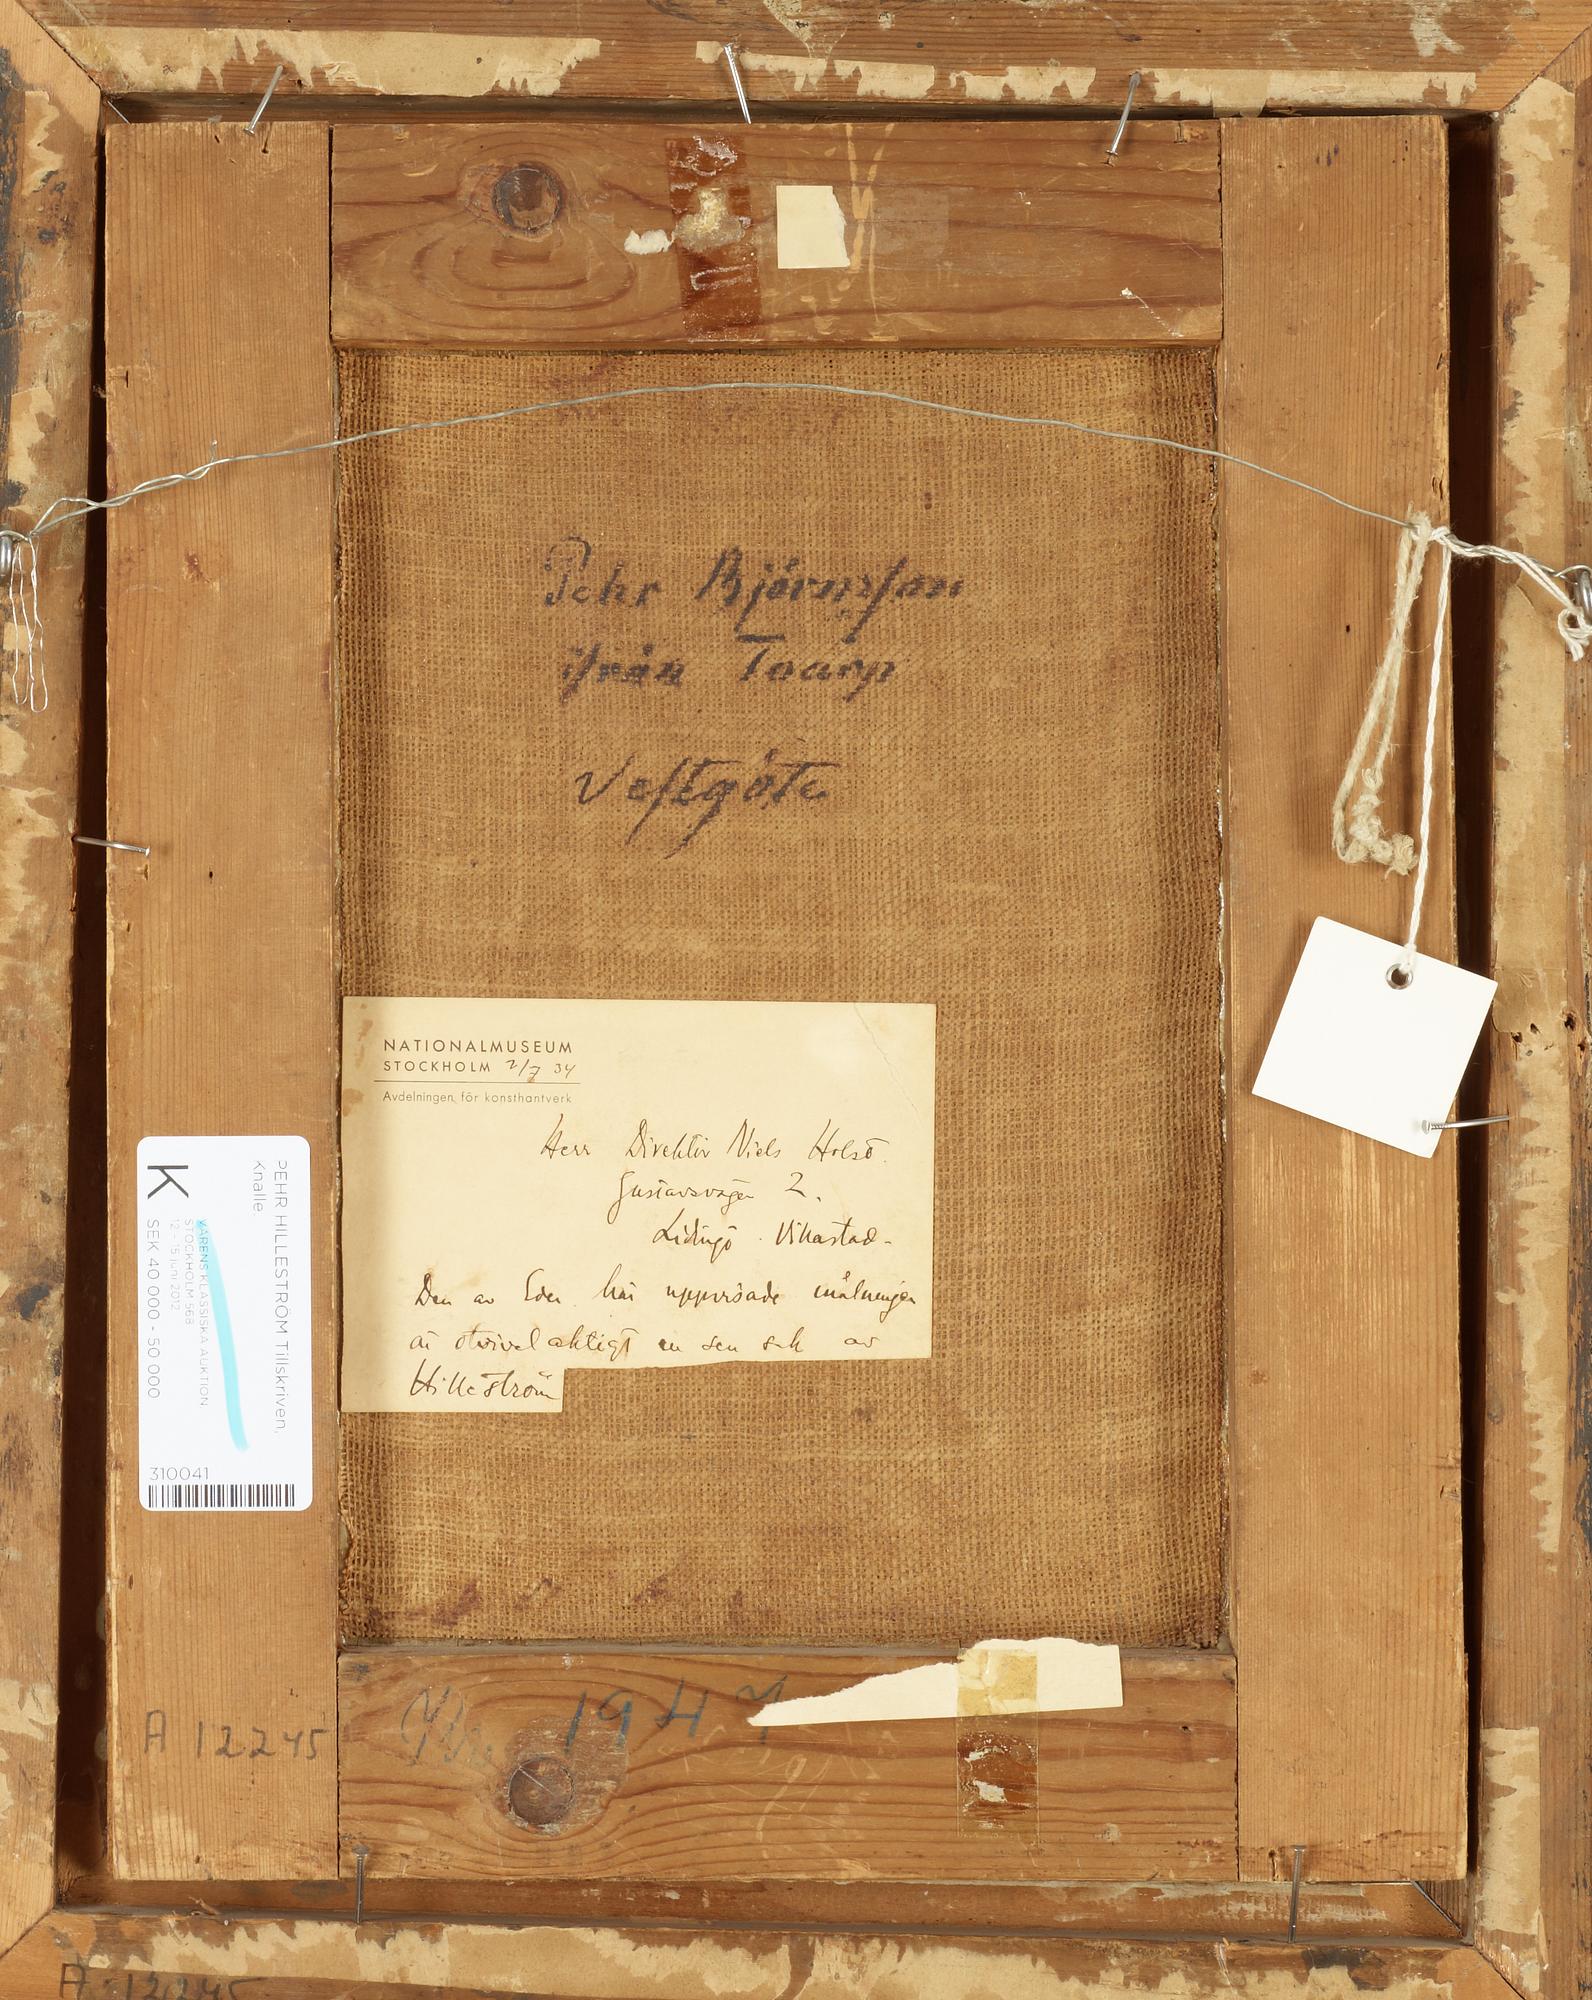 Pehr Björnsson
ifrån Toarp
Vestgöte
NATIONALMUSEUM
STOCKHOLM 2/7 34
Avdelningen för konsthantverk
Herr Direktör Niels Holst.
Gustavsvägen 2.
Lidingö Villastad.
Den av Eder här uppvisade målningen
är otvivelaktigt en sen sak av
Hilleström
PEHR HILLESTRÖM Tillskriven,
Knalle.
VÅRENS KLASSISKA AUKTION
STOCKHOLM 568
12 - 15 juni 2012
K SEK 40 000 - 50 000
310041
A 12245
1947
A 12245